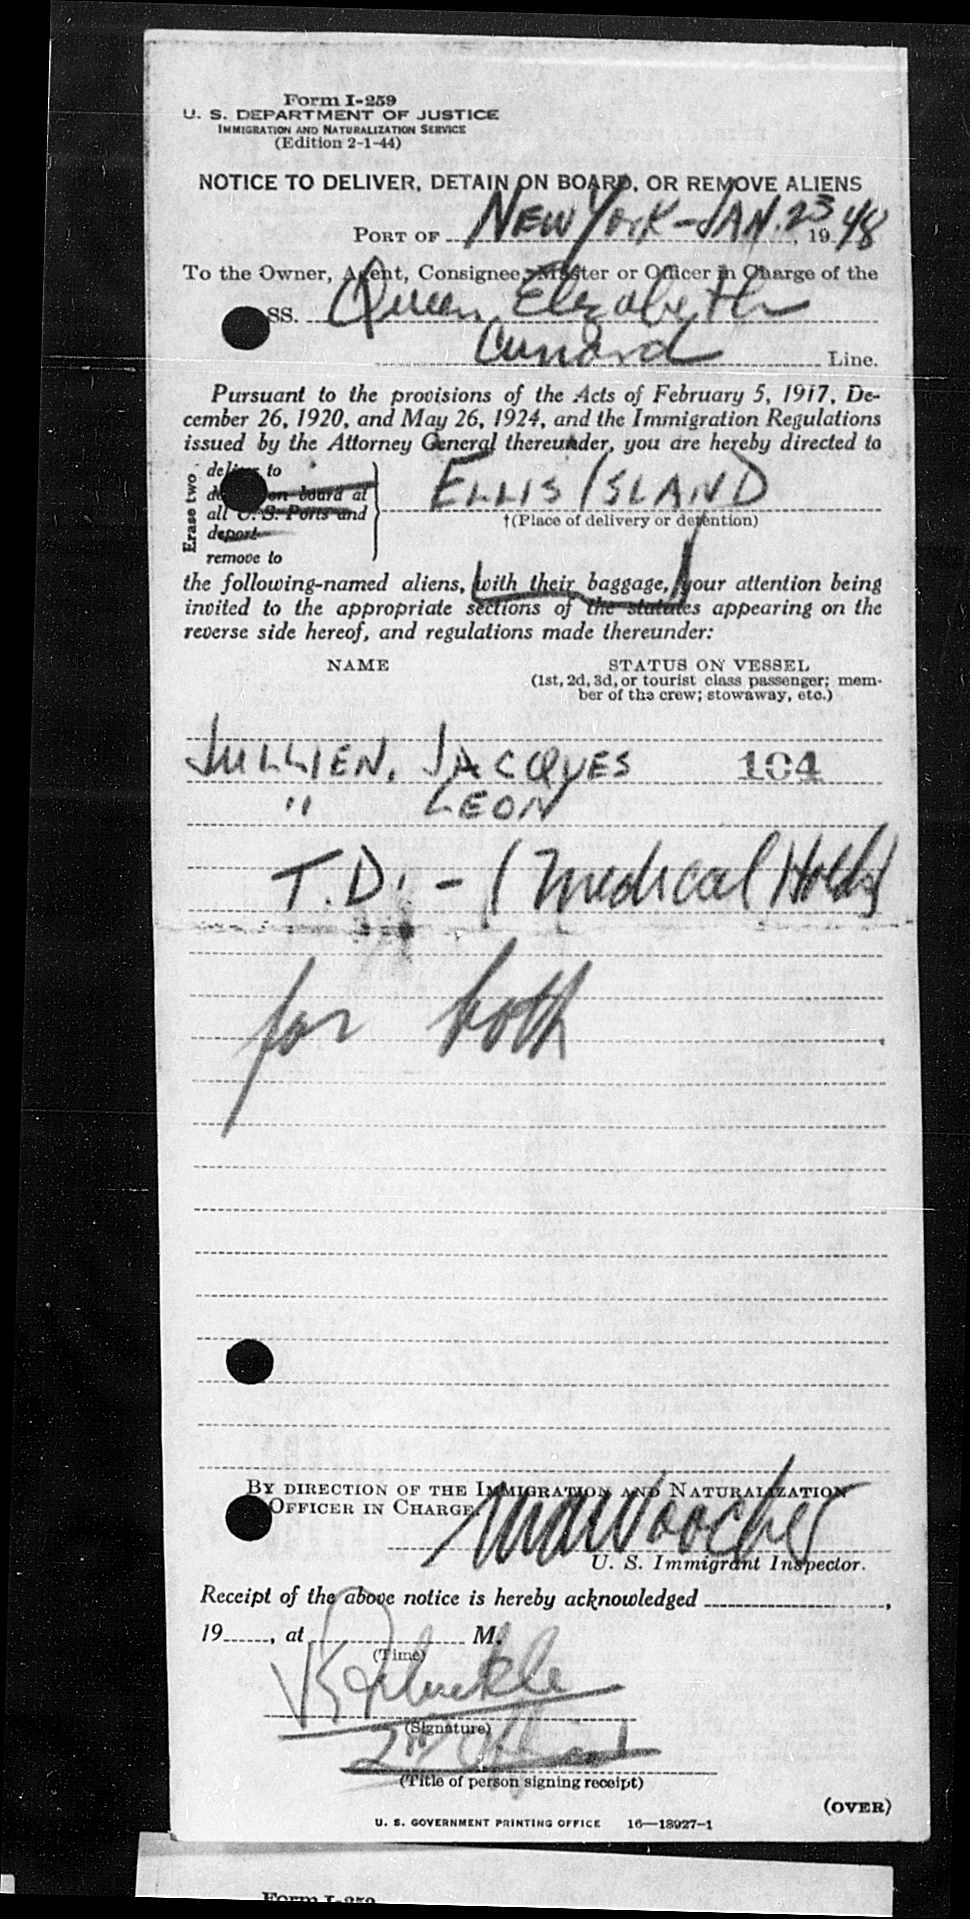 Form I-259
U. S. DEPARTMENT OF JUSTICE
IMMIGRATION AND NATURALIZATION SERVICE
(Edition 2-1-44)
NOTICE TO DELIVER, DETAIN ON BOARD, OR REMOVE ALIENS
PORT OF NEW YORK - JAN. 23, 1948
To the Owner, Agent, Consignee, Master or Officer in Charge of the
SS. Queen Elizabeth
Cunard Line.
Pursuant to the provisions of the Acts of February 5, 1917, De-
cember 26, 1920, and May 26, 1924, and the Immigration Regulations
issued by the Attorney General thereunder, you are hereby directed to
Erase two
deliver to
on board at
all U. S. Ports and
deport
remove to
ELLIS ISLAND
†(Place of delivery or detention)
the following-named aliens, with their baggage, your attention being
invited to the appropriate sections of the statutes appearing on the
reverse side hereof, and regulations made thereunder:
NAME STATUS ON VESSEL
(1st, 2d, 3d, or tourist class passenger; mem-
ber of the crew; stowaway, etc.)
JULLIEN, JACQUES 104
" LEON
T.D. - (Medical Hold)
for both
BY DIRECTION OF THE IMMIGRATION AND NATURALIZATION
OFFICER IN CHARGE.
U. S. Immigrant Inspector.
Receipt of the above notice is hereby acknowledged ,
19 , at M.
(Time)
(Signature)
(Title of person signing receipt)
(OVER)
U. S. GOVERNMENT PRINTING OFFICE 16—18927-1
Form I-259